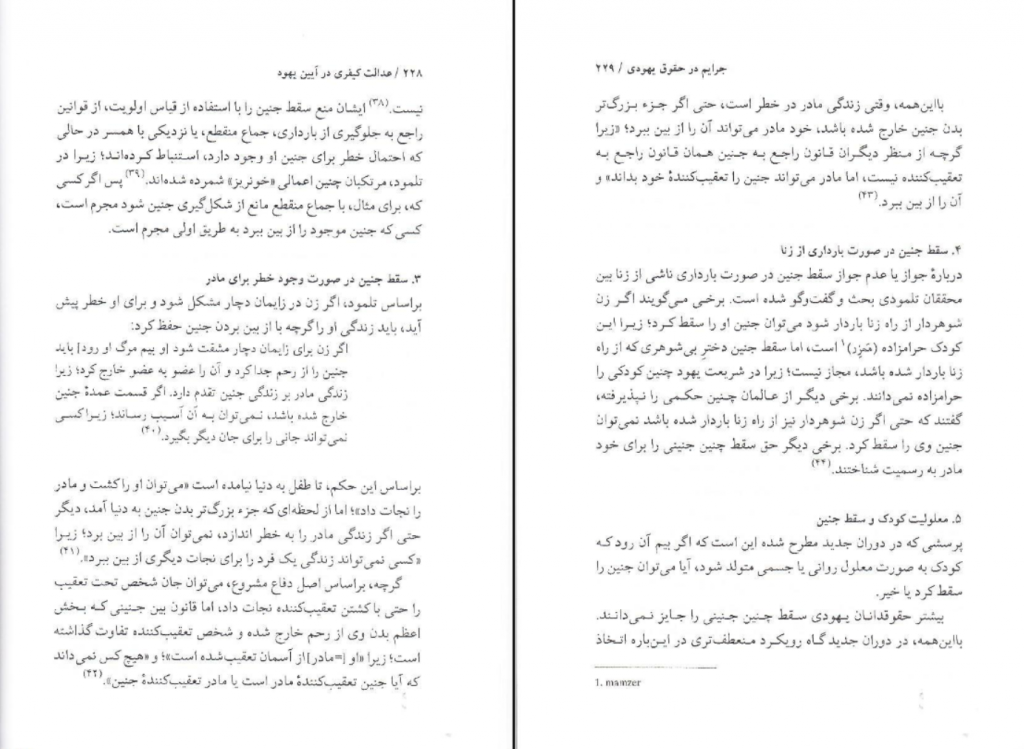 ۲۲۸ / عدالت کیفری در آیین یهود
نیست.(۳۸) ایشان منع سقط جنین را با استفاده از قیاس اولویت، از قوانین
راجع به جلوگیری از بارداری، جماع منقطع، یا نزدیکی با همسر در حالی
که احتمال خطر برای جنین او وجود دارد، استنباط کرده‌اند؛ زیرا در
تلمود، مرتکبان چنین اعمالی «خونریز» شمرده شده‌اند.(۳۹) پس اگر کسی
که، برای مثال، با جماع منقطع مانع از شکل‌گیری جنین شود مجرم است،
کسی که جنین موجود را از بین ببرد به طریق اولی مجرم است.
۳. سقط جنین در صورت وجود خطر برای مادر
براساس تلمود، اگر زن در زایمان دچار مشکل شود و برای او خطر پیش
آید، باید زندگی او را گرچه با از بین بردن جنین حفظ کرد:
اگر زن برای زایمان دچار مشقت شود [و بیم مرگ او رود] باید
جنین را از رحم جدا کرد و آن را عضو به عضو خارج کرد؛ زیرا
زندگی مادر بر زندگی جنین تقدم دارد. اگر قسمت عمدهٔ جنین
خارج شده باشد، نمی‌توان به آن آسیب رساند؛ زیرا کسی
نمی‌تواند جانی را برای جان دیگر بگیرد.(۴۰)
براساس این حکم، تا طفل به دنیا نیامده است «می‌توان او را کشت و مادر
را نجات داد»؛ اما از لحظه‌ای که جزء بزرگ‌تر بدن جنین به دنیا آمد، دیگر
حتی اگر زندگی مادر را به خطر اندازد، نمی‌توان آن را از بین برد؛ زیرا
«کسی نمی‌تواند زندگی یک فرد را برای نجات دیگری از بین ببرد».(۴۱)
گرچه، براساس اصل دفاع مشروع، می‌توان جان شخص تحت تعقیب
را حتی با کشتن تعقیب‌کننده نجات داد، اما قانون بین جنینی که بخش
اعظم بدن وی از رحم خارج شده و شخص تعقیب‌کننده تفاوت گذاشته
است؛ زیرا «او [=مادر] از آسمان تعقیب‌شده است»؛ و «هیچ کس نمی‌داند
که آیا جنین تعقیب‌کنندهٔ مادر است یا مادر تعقیب‌کنندهٔ جنین».(۴۲)
جرایم در حقوق یهودی / ۲۲۹
بااین‌همه، وقتی زندگی مادر در خطر است، حتی اگر جزء بزرگ‌تر
بدن جنین خارج شده باشد، خود مادر می‌تواند آن را از بین ببرد؛ «زیرا
گرچه از منظر دیگران قانون راجع به جنین همان قانون راجع به
تعقیب‌کننده نیست، اما مادر می‌تواند جنین را تعقیب‌کنندهٔ خود بداند» و
آن را از بین ببرد.(۴۳)
۴. سقط جنین در صورت بارداری از زنا
دربارهٔ جواز یا عدم جواز سقط جنین در صورت بارداری ناشی از زنا بین
محققان تلمودی بحث و گفت‌وگو شده است. برخی می‌گویند اگر زن
شوهردار از راه زنا باردار شود می‌توان جنین او را سقط کرد؛ زیرا این
کودک حرامزاده (مَمزِر)۱ است، اما سقط جنین دخترِ بی‌شوهری که از راه
زنا باردار شده باشد، مجاز نیست؛ زیرا در شریعت یهود چنین کودکی را
حرامزاده نمی‌دانند. برخی دیگر از عالمان چنین حکمی را نپذیرفته،
گفتند که حتی اگر زن شوهردار نیز از راه زنا باردار شده باشد نمی‌توان
جنین وی را سقط کرد. برخی دیگر حق سقط چنین جنینی را برای خود
مادر به رسمیت شناختند.(۴۴)
۵. معلولیت کودک و سقط جنین
پرسشی که در دوران جدید مطرح شده این است که اگر بیم آن رود که
کودک به صورت معلول روانی یا جسمی متولد شود، آیا می‌توان جنین را
سقط کرد یا خیر.
بیشتر حقوقدانان یهودی سقط چنین جنینی را جایز نمی‌دانند.
بااین‌همه، در دوران جدید گاه رویکرد منعطف‌تری در این‌باره اتخاذ
1. mamzer